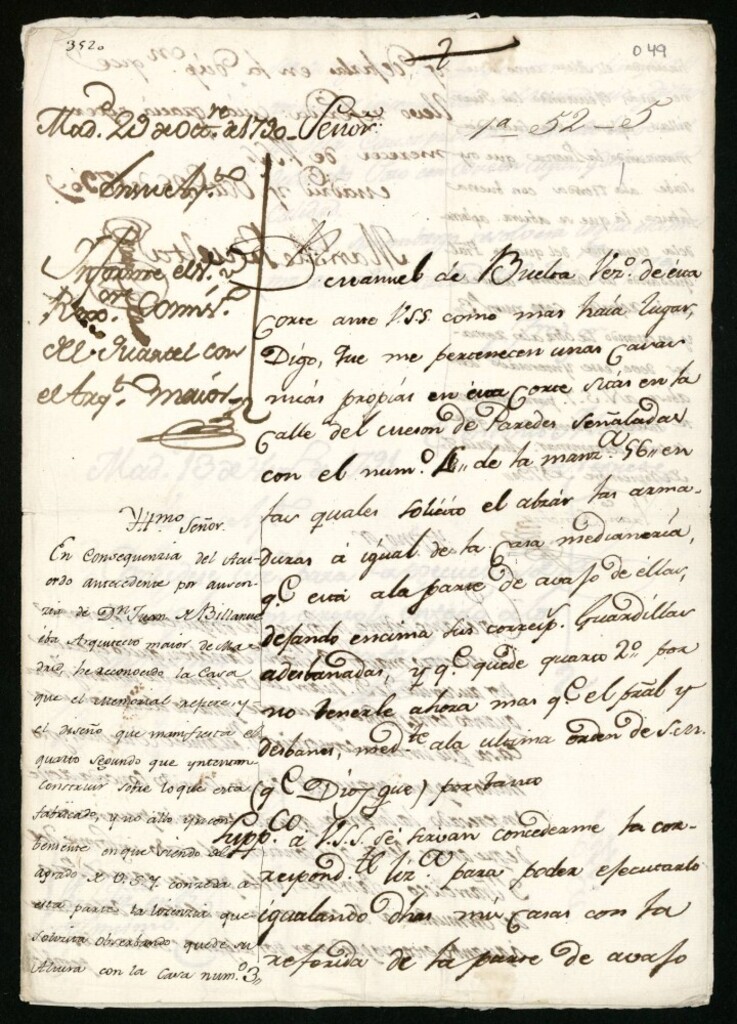 352.
2
049
Mad.d 29 de Oct.re de 1790.
Señor.
1a 52 - 5
Informe el S.r
Rex.or Comis.o
del Quartel con
el Arq.to maior
Yll.mo Señor.
En Consequenzia del Acu-
erdo antecedente por ausen-
zia de D.n Juan de Billanue
ba Arquitecto maior de Ma-
drid, he reconocido la Casa
que el memorial refiere, y
el diseño que manifiesta el
quarto segundo que yntentan
construir sobre lo que esta
fabricado, y no allo yncon-
beniente en que siendo del
agrado de V.S.Y. conzeda a
esta parte la lizenzia que
solizita obserbando quede su
Altura con la Casa num.o 3,
Manuel de Buelta Vez.o de esta
Corte ante V.S.S. como mas haia lugar,
Digo, que me pertenecen unas Casas
mias propias en esta Corte sitas en la
Calle del meson de Paredes señaladas
con el num.o 4,, de la manz.a 56,, en
las quales solicito el alzár las arma-
duras á igual de la Casa medianería,
q.e está ala parte de avajo de éllas,
dejando encima sus corresp. Guardillas
adesbanadas, y q.e quede quarto 2.o por
no tenerle ahora mas q.e el pral y
desbanes, med.te ala ultima orden de S.M.
(q.e Dios gue) por tanto
Supp.co a V.S.S. se sirvan concederme la cor-
respond.te liz.a para poder ejecutarlo
igualando dhas mis Casas con la
referida de la parte de avajo